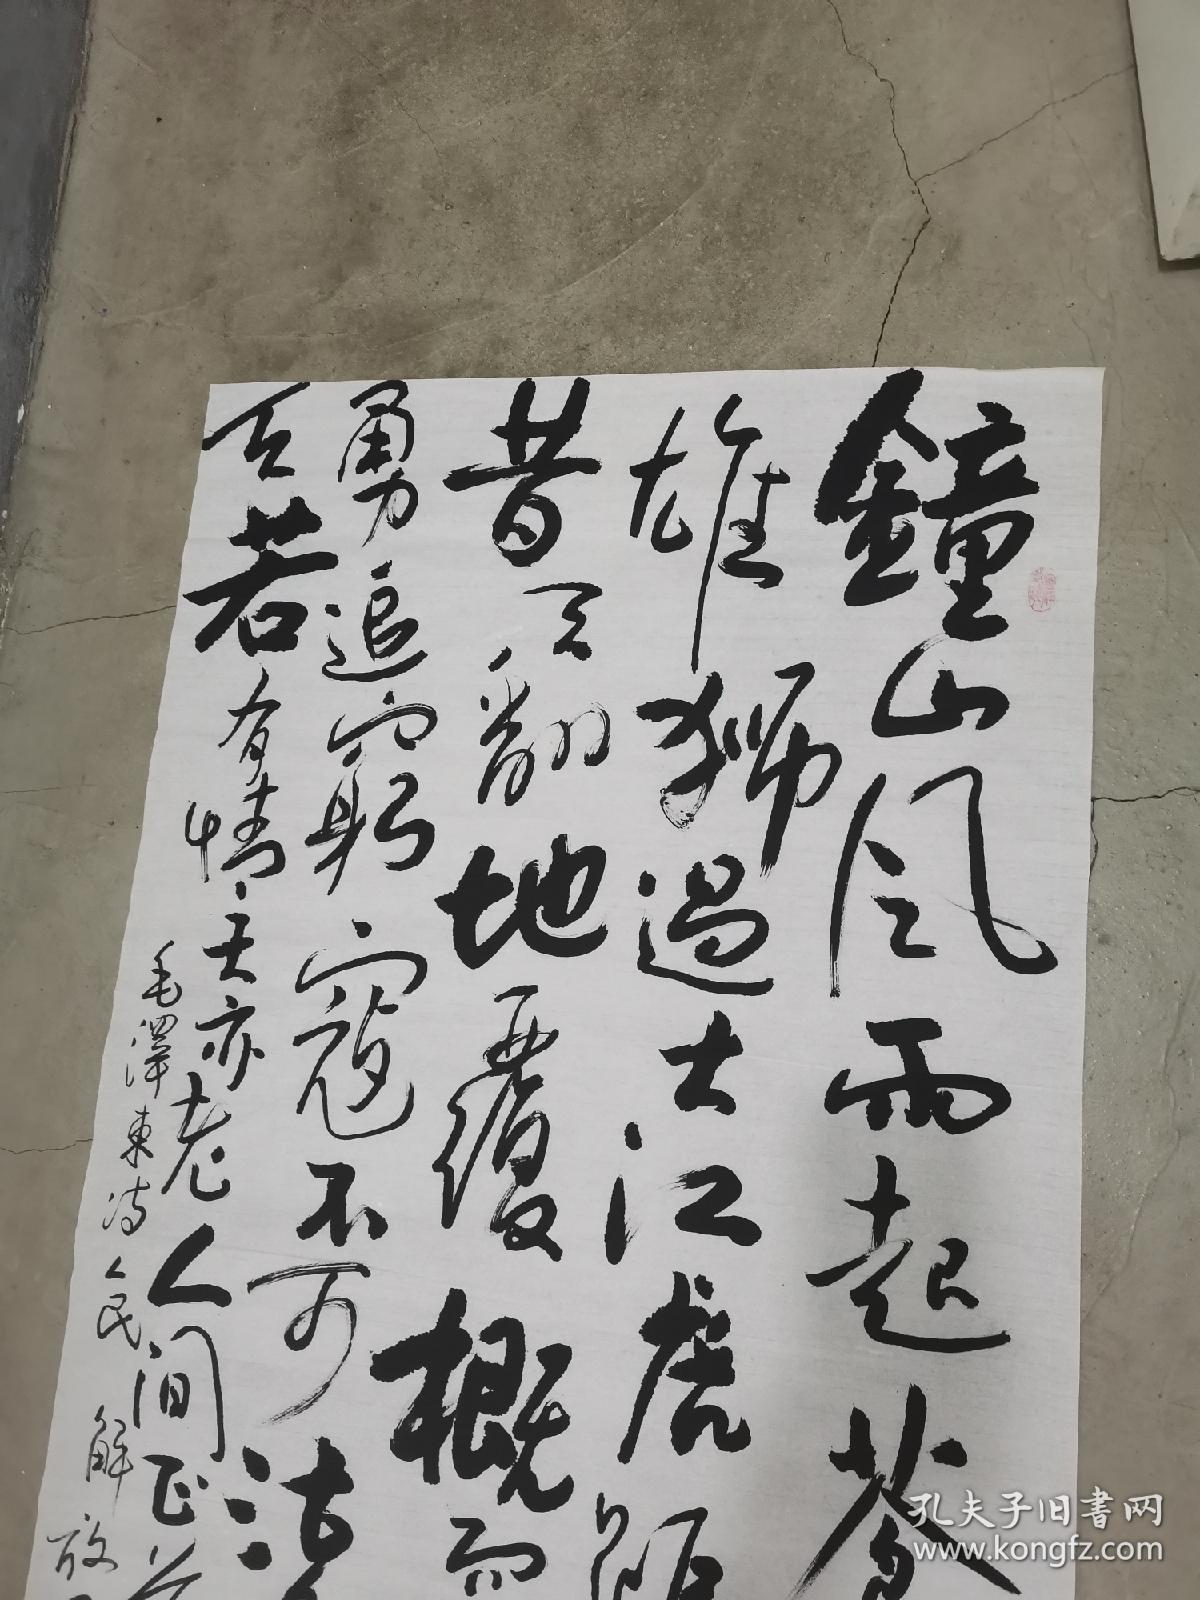 鐘山风雨起蒼
雄狮過大江虎踞
昔天翻地覆概而
勇追窮寇不可沽
天若有情天亦老人间正
毛澤東诗人民解放
孔夫子旧書网
www.kongfz.com